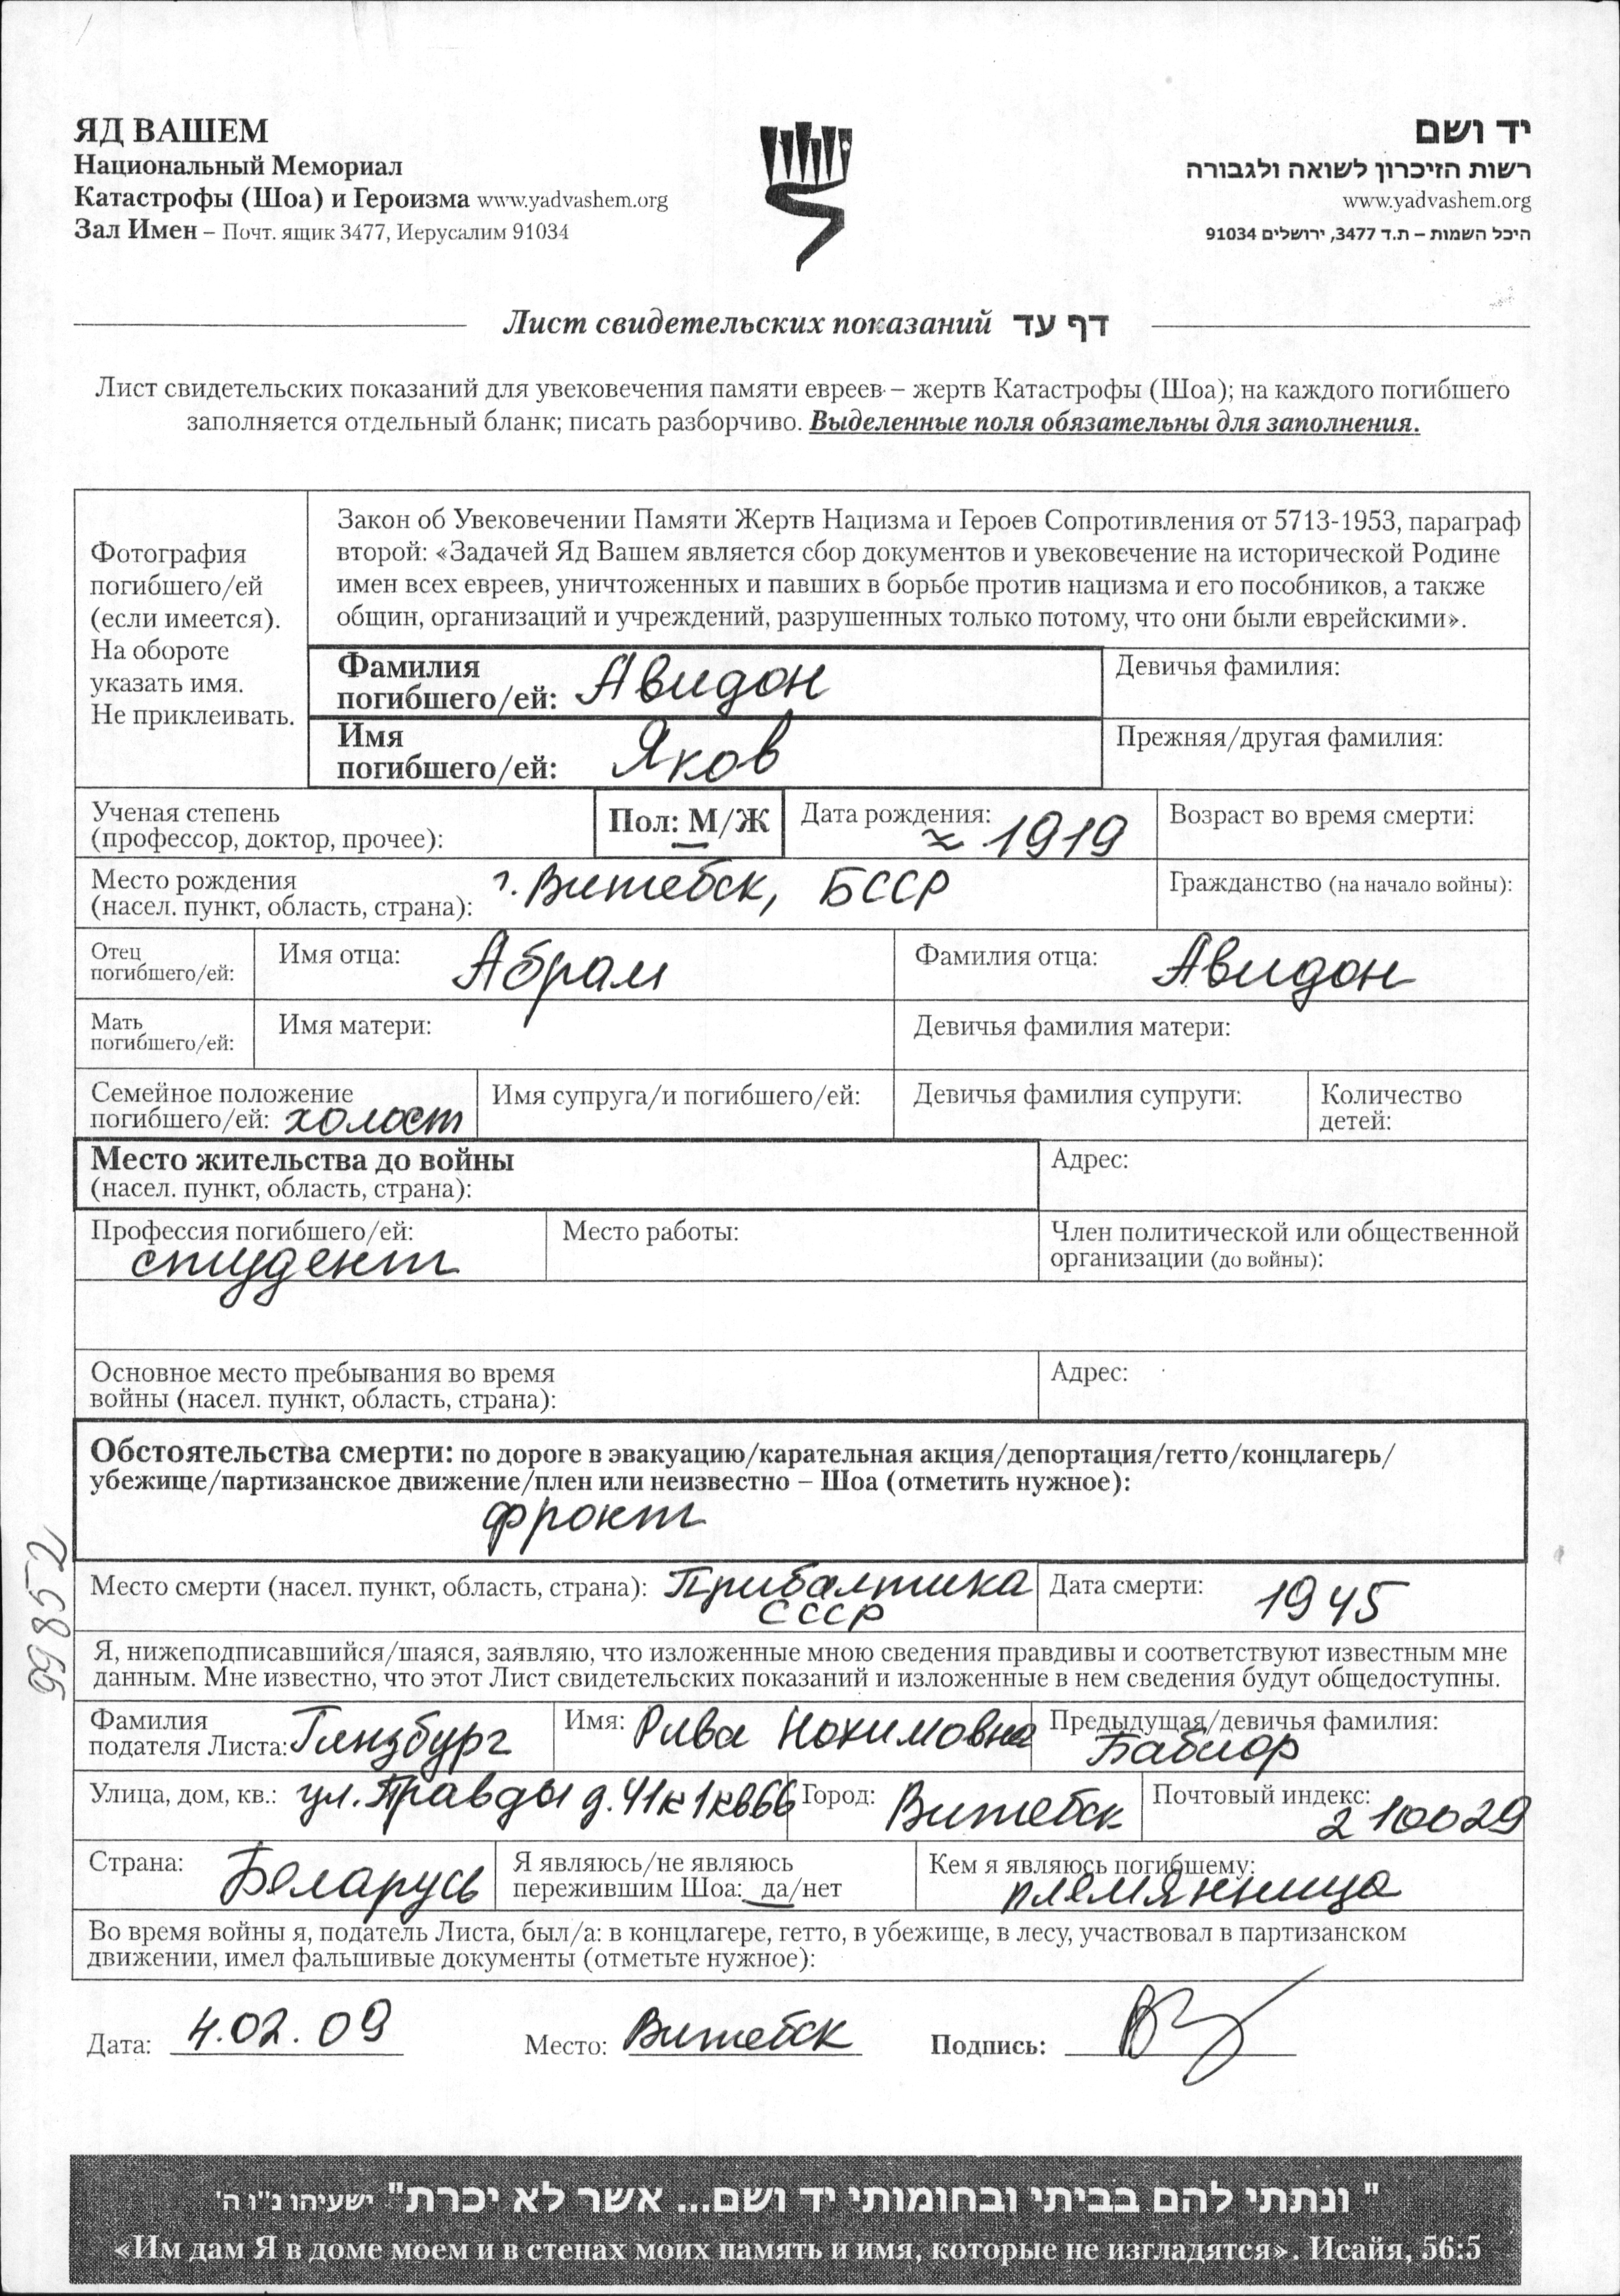 ЯД ВАШЕМ
Национальный Мемориал
Катастрофы (Шоа) и Героизма www.yadvashem.org
Зал Имен – Почт. ящик 3477, Иерусалим 91034
יד ושם
רשות הזיכרון לשואה ולגבורה
www.yadvashem.org
היכל השמות – ת.ד 3477, ירושלים 91034
Лист свидетельских показаний דף עד
Лист свидетельских показаний для увековечения памяти евреев – жертв Катастрофы (Шоа); на каждого погибшего
заполняется отдельный бланк; писать разборчиво. Выделенные поля обязательны для заполнения.
Фотография
погибшего/ей
(если имеется).
На обороте
указать имя.
Не приклеивать.
Закон об Увековечении Памяти Жертв Нацизма и Героев Сопротивления от 5713-1953, параграф
второй: «Задачей Яд Вашем является сбор документов и увековечение на исторической Родине
имен всех евреев, уничтоженных и павших в борьбе против нацизма и его пособников, а также
общин, организаций и учреждений, разрушенных только потому, что они были еврейскими».
Фамилия
погибшего/ей: Авидон
Девичья фамилия:
Имя
погибшего/ей: Яков
Прежняя/другая фамилия:
Ученая степень
(профессор, доктор, прочее):
Пол: М/Ж
Дата рождения: ≈ 1919
Возраст во время смерти:
Место рождения
(насел. пункт, область, страна): г. Витебск, БССР
Гражданство (на начало войны):
Отец
погибшего/ей:
Имя отца: Абрам
Фамилия отца: Авидон
Мать
погибшего/ей:
Имя матери:
Девичья фамилия матери:
Семейное положение
погибшего/ей: холост
Имя супруга/и погибшего/ей:
Девичья фамилия супруги:
Количество
детей:
Место жительства до войны
(насел. пункт, область, страна):
Адрес:
Профессия погибшего/ей:
студент
Место работы:
Член политической или общественной
организации (до войны):
Основное место пребывания во время
войны (насел. пункт, область, страна):
Адрес:
Обстоятельства смерти: по дороге в эвакуацию/карательная акция/депортация/гетто/концлагерь/
убежище/партизанское движение/плен или неизвестно – Шоа (отметить нужное):
фронт
Место смерти (насел. пункт, область, страна): Прибалтика
СССР
Дата смерти: 1945
Я, нижеподписавшийся/шаяся, заявляю, что изложенные мною сведения правдивы и соответствуют известным мне
данным. Мне известно, что этот Лист свидетельских показаний и изложенные в нем сведения будут общедоступны.
Фамилия
податели Листа: Гинзбург
Имя: Рива Нохимовна
Предыдущая/девичья фамилия:
Бабиор
Улица, дом, кв.: ул. Правды д. 41 к 1 кв 66
Город: Витебск
Почтовый индекс:
210029
Страна: Беларусь
Я являюсь/не являюсь
пережившим Шоа: да/нет
Кем я являюсь погибшему:
племянница
Во время войны я, податель Листа, был/а: в концлагере, гетто, в убежище, в лесу, участвовал в партизанском
движении, имел фальшивые документы (отметьте нужное):
Дата: 4.02.09
Место: Витебск
Подпись:
99852
" ונתתי להם בביתי ובחומותי יד ושם... אשר לא יכרת" ישעיהו נ"ו ה'
«Им дам Я в доме моем и в стенах моих память и имя, которые не изгладятся». Исайя, 56:5